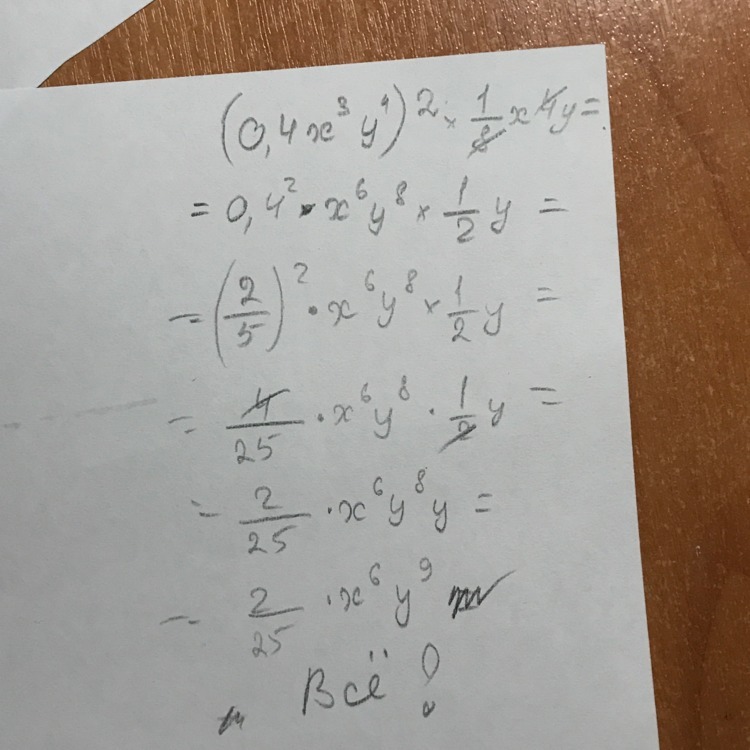 (0,4x³y⁴)² × 1/8 x 4y =
= 0,4² · x⁶y⁸ × 1/2 y =
= (2/5)² · x⁶y⁸ × 1/2 y =
= 4/25 · x⁶y⁸ · 1/2 y =
= 2/25 · x⁶y⁸y =
= 2/25 · x⁶y⁹
Всё!